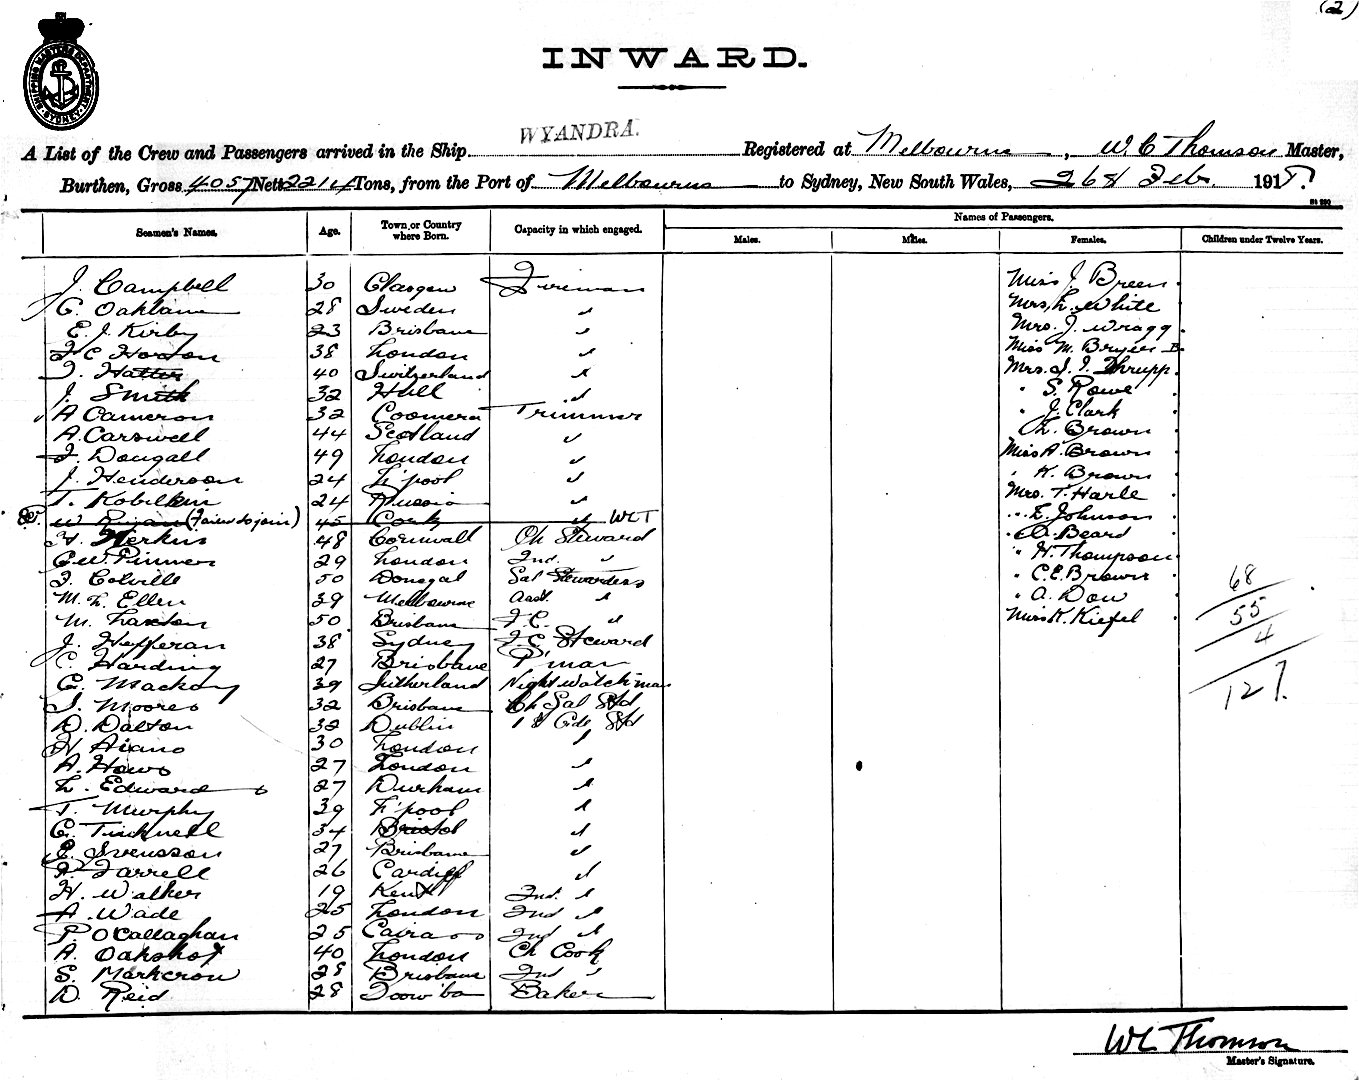 (2)
SHIPPING MASTERS DEPARTMENT SYDNEY
INWARD.
WYANDRA.
A List of the Crew and Passengers arrived in the Ship Registered at Melbourne, W. C Thomson Master,
Burthen, Gross 4057 Nett 2214 Tons, from the Port of Melbourne to Sydney, New South Wales, 26th Feb. 1918.
Names of Passengers.
Seamen's Names. Age. Town, or Country where Born. Capacity in which engaged. Males. Males. Females. Children under Twelve Years.
J. Campbell 30 Glasgow Fireman Miss J. Breen
28 Sweden " Mrs. E. White
E. J. Kirby 23 Brisbane " Mrs. J. Wragg
F C Horton 38 London " Miss M. Bryers B
40 Switzerland " Mrs. J. I. Thrupp
J. Smith 32 Hull " " S. Rowe
A Cameron 32 Coomera Trimmer " J. Clark
A. Carswell 44 Scotland " " L. Brown
F. Dougall 49 London " Miss A. Brown
J. Henderson 24 L'pool " " K. Brown
T. Kobilkin 24 Russia " Mrs. T. Harle
W Ryan (Failed to join) 45 Cork " WCT " E. Johnson
48 Cornwall Ch Steward " A. Beard
C. W. Pinner 29 London 2nd " " H. Thompson
F. Colville 50 Donegal Sal Stewardess " C. E. Brown
M. L. Ellen 39 Melbourne Asst. " " A. Dow
M. Laxton 50 Brisbane F.C. " Miss K. Kiefel
J. Hefferan 38 Sydney F.C. Steward
C. Harding 27 Brisbane P'man
G. Mackay 39 Sutherland Night watchman
J. Moores 32 Brisbane Ch Sal Std
D. Dalton 32 Dublin 1st Gde Std
H Aiano 30 London "
A. Hows 27 London "
L. Edwards 27 Durham "
T. Murphy 39 L'pool "
G. Ticknell 34 Bristol "
E. Svensson 27 Brisbane "
F. Farrell 26 Cardiff "
H. Walker 19 Kent 2nd "
A. Wade 25 London 2nd "
P. O'Callaghan 25 Cairns 2nd "
A. Oakshot 40 London Ch Cook
S. Markcrow 28 Brisbane 2nd "
D. Reid 28 Toow'ba Baker
68
55
4
127.
WC Thomson
Master's Signature.